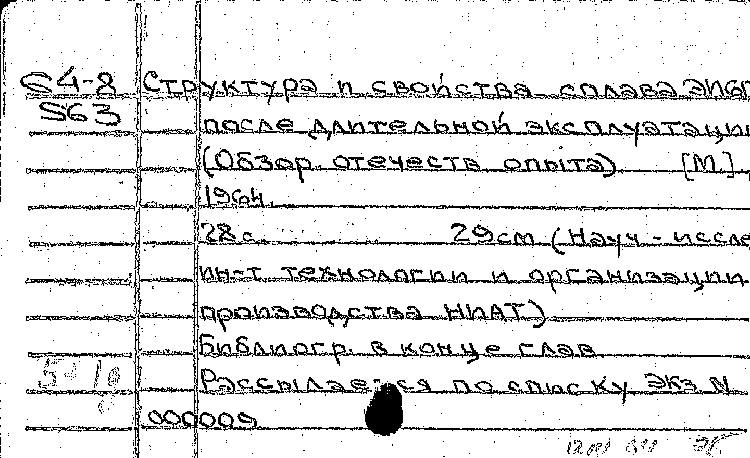 S4-8 Структура и свойства сплава ЭИ6
S63 после длительной эксплуатации
(Обзор отечеств опыта) [М.],
1964.
28 с. 29см (Науч-иссле
ин-т технологии и организации
производства НИАТ)
Библиогр. в конце глав
Рассылается по списку Экз N
000009